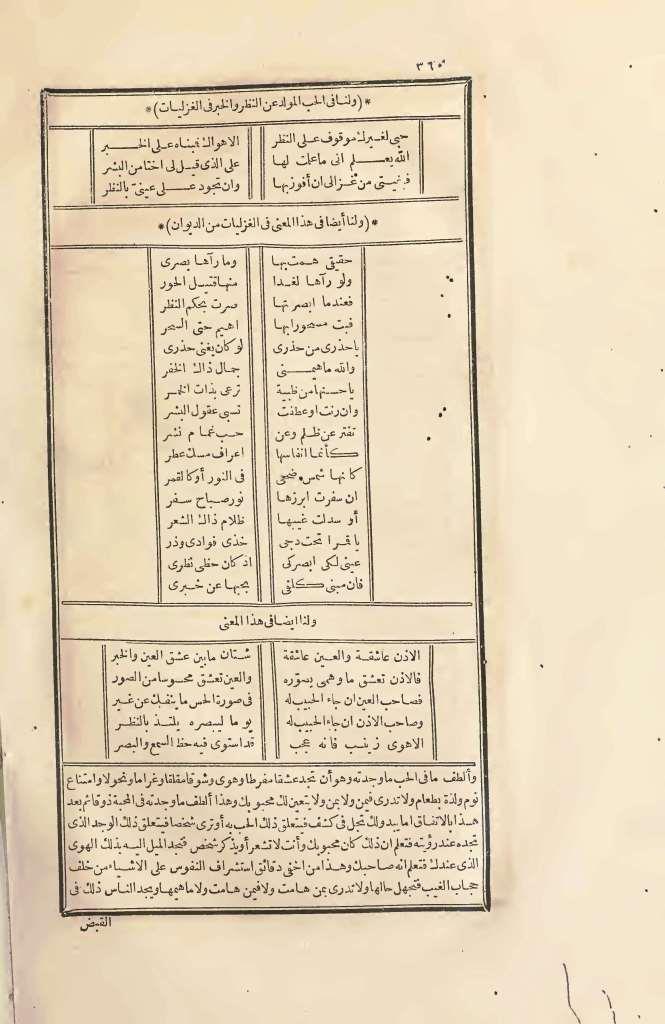 ٣٦٠
*(ولنا فى الحب المولد عن النظر والخبر فى الغزليات)*
حبى لغيرك موقوف على النظر الا هواك فبناه على الخبر
الله يعلم انى ما علت لها على الذى قيل لى اختا من البشر
فبغيتى من غزالى ان أفوز بها وان تجود على عينى بالنظر
*(ولنا أيضا فى هذا المعنى فى الغزليات من الديوان)*
حقيقتى همت بها وما رآها بصرى
ولو رآها لغدا منها قتيل الحور
فعندما ابصرتها صرت بحكم النظر
فبت مسحورا بها اهيم حتى السحر
يا حذرى من حذرى لو كان يغنى حذرى
والله ما هيمنى جمال ذاك الخفر
يا حسنها من ظبية ترعى بذات الخمر
وان رنت او عطفت تسبى عقول البشر
تفتر عن ظلم وعن حب غمام نشر
كأنما انفاسها اعراف مسك عطر
كانها شمس ضحى فى النور أو كالقمر
ان سفرت ابرزها نور صباح سفر
أو سدلت غيبها ظلام ذاك الشعر
يا قمرا تحت دجى خذى فوادى وذر
عينى لكى ابصركى اذ كان حظى نظرى
فان مبنى كلفى بحبها عن خبرى
ولنا ايضا فى هذا المعنى
الاذن عاشقة والعين عاشقة شتان ما بين عشق العين والخبر
فالاذن تعشق ما وهمى يصوّره والعين تعشق محسوسا من الصور
فصاحب العين ان جاء الحبيب له فى صورة الحس ما ينفك عن غير
وصاحب الاذن ان جاء الحبيب له يوما ليبصره يلتذ بالنظر
الا هوى زينب فانه عجب قد استوى فيه حظ السمع والبصر
وألطف ما فى الحب ما وجدته وهو أن تجد عشقا مفرطا وهوى وشوقا مقلقا وغراما ونحولا وامتناع
نوم ولذة بطعام ولا تدرى فيمن ولا بمن ولا يتعين لك محبوبك وهذا ألطف ما وجدته فى المحبة ذوقا ثم بعد
هذا بالاتفاق اما يبدو لك تجل فى كشف فيتعلق ذلك الحب به أو ترى شخصا فيتعلق ذلك الوجد الذى
تجده عند رؤيته فتعلم ان ذلك كان محبوبك وأنت لا تشعر أو يذكر شخص فتجد الميل اليه بذلك الهوى
الذى عندك فتعلم انه صاحبك وهذا من اخفى دقائق استشراف النفوس على الاشياء من خلف
حجاب الغيب فتجهل حالها ولا تدرى بمن هامت ولا فيمن هامت ولا ما هيمها ويجد الناس ذلك فى
القبض